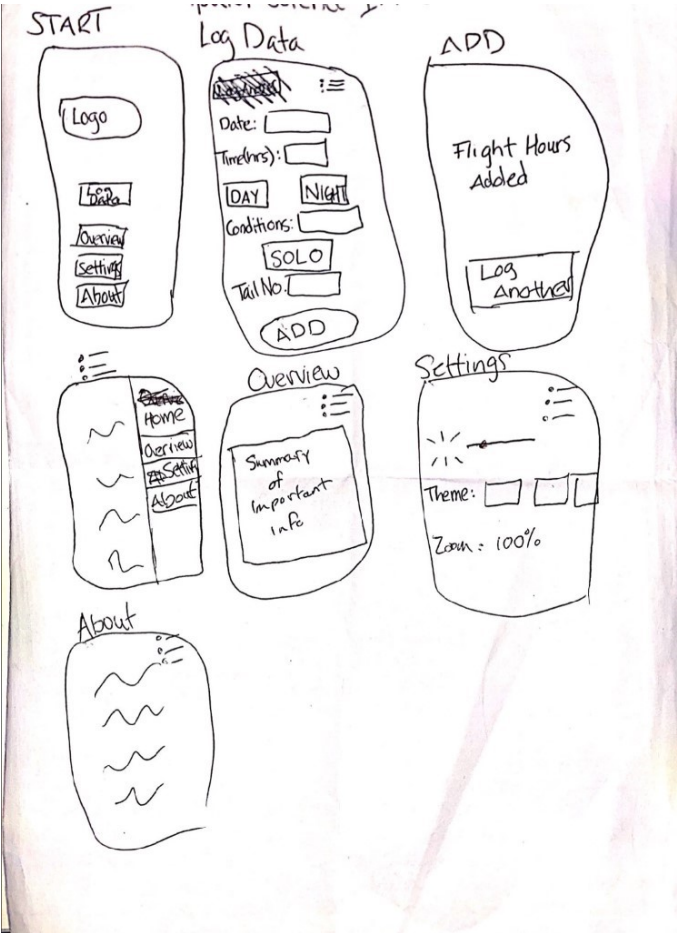 START
Log Data
ADD
Logo
Log
Data
Overview
Settings
About
Date:
Time(hrs):
DAY NIGHT
Conditions:
SOLO
Tail No:
ADD
Flight Hours
Added
Log
Another
Home
Overview
Settings
About
Overview
Summary
of
important
info
Settings
Theme:
Zoom: 100%
About